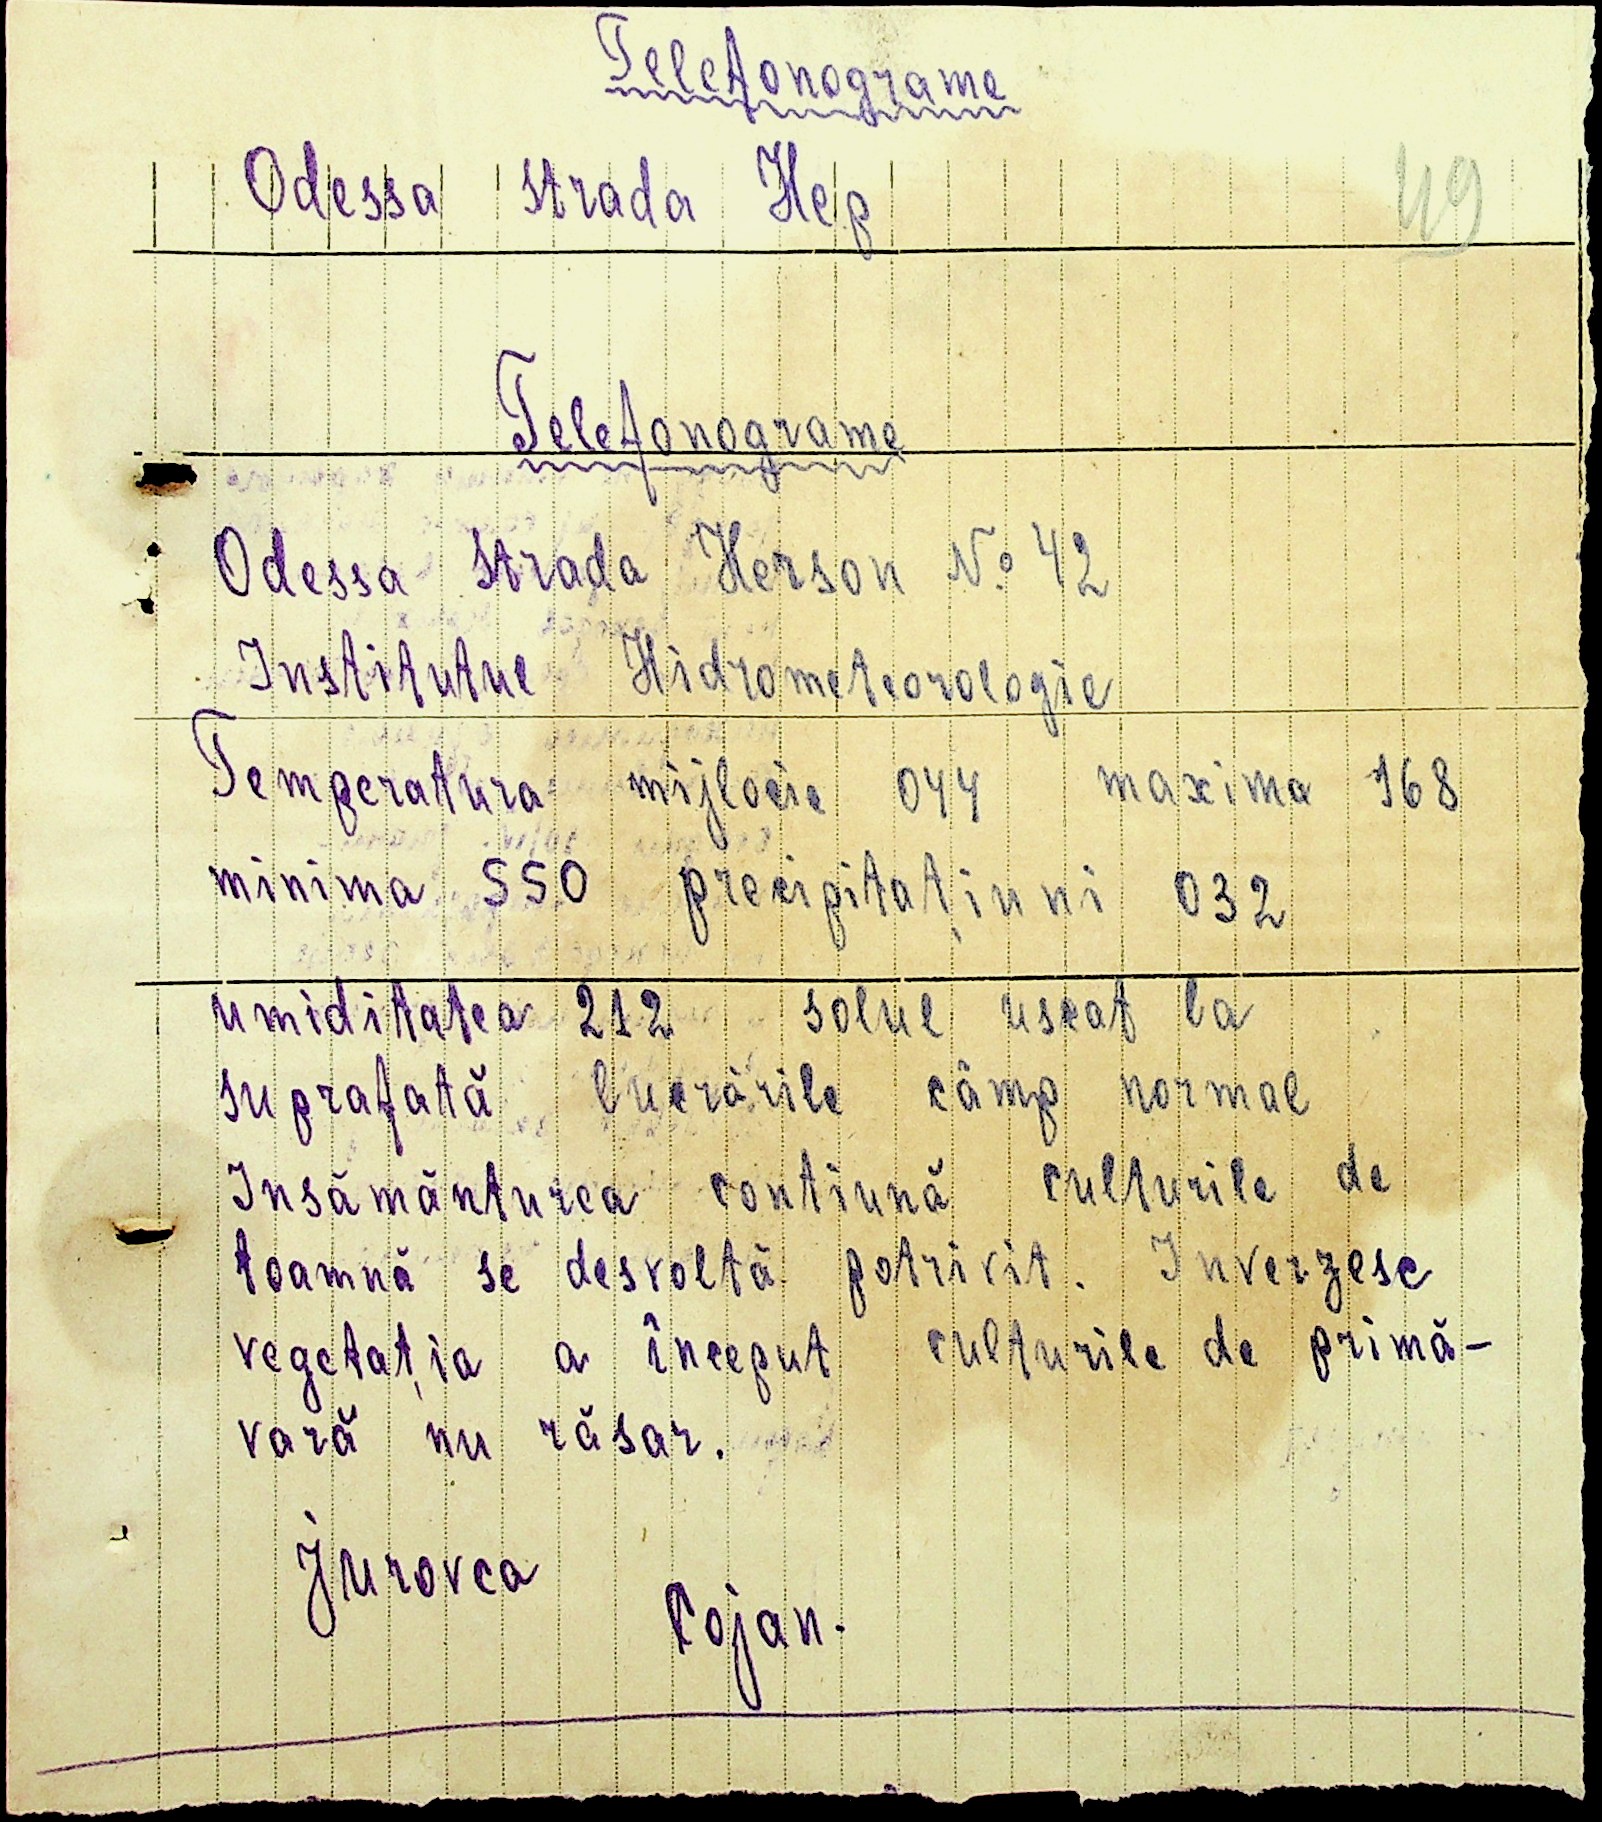 Telefonograme
Odessa strada Hep
49
Telefonograme
Odessa strada Herson № 42
Institutul Hidrometeorologie
Temperatura mijlocie 044 maxima 168
minima 550 precipitațiuni 032
umiditatea 212 solul uscat la
suprafată lucrările câmp normal
Insămănturea contiună culturile de
toamnă se desvoltă potrivit. Inverzesc
vegetația a început culturile de primă-
vară nu răsar.
Jurovca
Cojan.